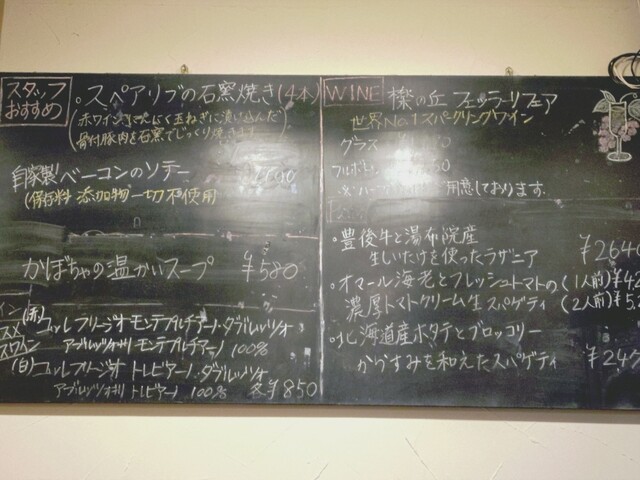 スタッフ
おすすめ
・スペアリブの石窯焼き(4本)
玉ねぎに漬け込んだ
骨付豚肉を石窯でじっくり焼きます
自家製ベーコンのソテー
(保存料 添加物一切不使用
かぼちゃの温かいスープ ¥580
(赤) コッレフリージオ モンテプルチアーノ・ダブルッツォ
アブルッツォ州 モンテプルチアーノ 100%
(白) コッレフリージオ トレビアーノ・ダブルッツォ
アブルッツォ州 トレビアーノ 100% 各¥850
WINE
の丘 フェッラーリフェア
世界No.1スパークリングワイン
グラス
フルボトル
用意しております.
・豊後牛と湯布院産
生しいたけを使ったラザニア ¥2640
・オマール海老とフレッシュトマトの (1人前)
濃厚トマトクリーム生スパゲティ (2人前)
・北海道産ホタテとブロッコリー
からすみを和えたスパゲティ